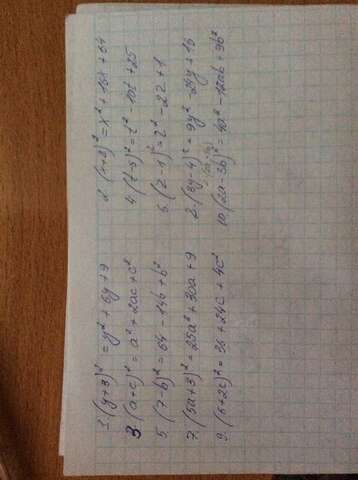 1. (y+3)² = y² + 6y + 9
2. (x+8)² = x² + 16x + 64
3. (a+c)² = a² + 2ac + c²
4. (t-5)² = t² - 10t + 25
5. (7-b)² = 64 - 14b + b²
6. (z-1)² = z² - 2z + 1
7. (5a+3)² = 25a² + 30a + 9
2. (3y-4)² = 9y² - 24y + 16
9. (6+2c)² = 36 + 24c + 4c²
10. (2a-3b)² = 4a² - 12ab + 9b²